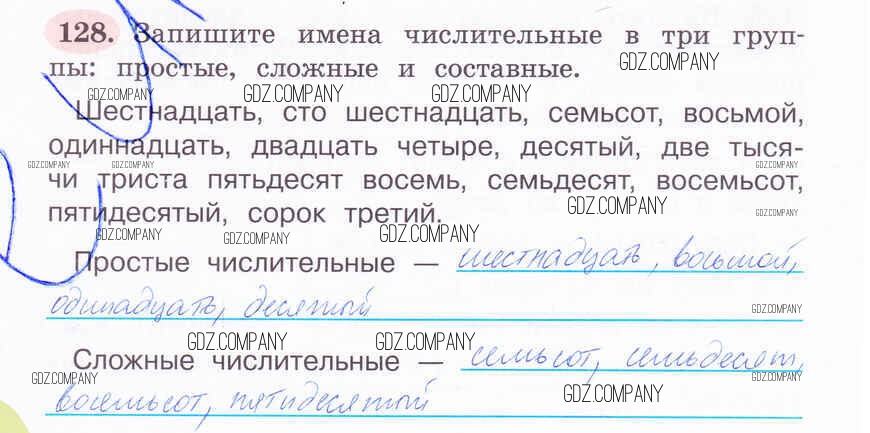 128. Запишите имена числительные в три груп-
пы: простые, сложные и составные.
GDZ.COMPANY
GDZ.COMPANY GDZ.COMPANY GDZ.COMPANY
Шестнадцать, сто шестнадцать, семьсот, восьмой,
одиннадцать, двадцать четыре, десятый, две тыся-
GDZ.COMPANY GDZ.COMPANY GDZ.COMPANY GDZ.COMPANY
чи триста пятьдесят восемь, семьдесят, восемьсот,
пятидесятый, сорок третий.
GDZ.COMPANY GDZ.COMPANY
GDZ.COMPANY GDZ.COMPANY GDZ.COMPANY
Простые числительные — шестнадцать, восьмой,
одинадцать, десятый
GDZ.COMPANY
GDZ.COMPANY GDZ.COMPANY
Сложные числительные — семьсот, семьдесят,
GDZ.COMPANY GDZ.COMPANY
GDZ.COMPANY
восемьсот, пятидесятый